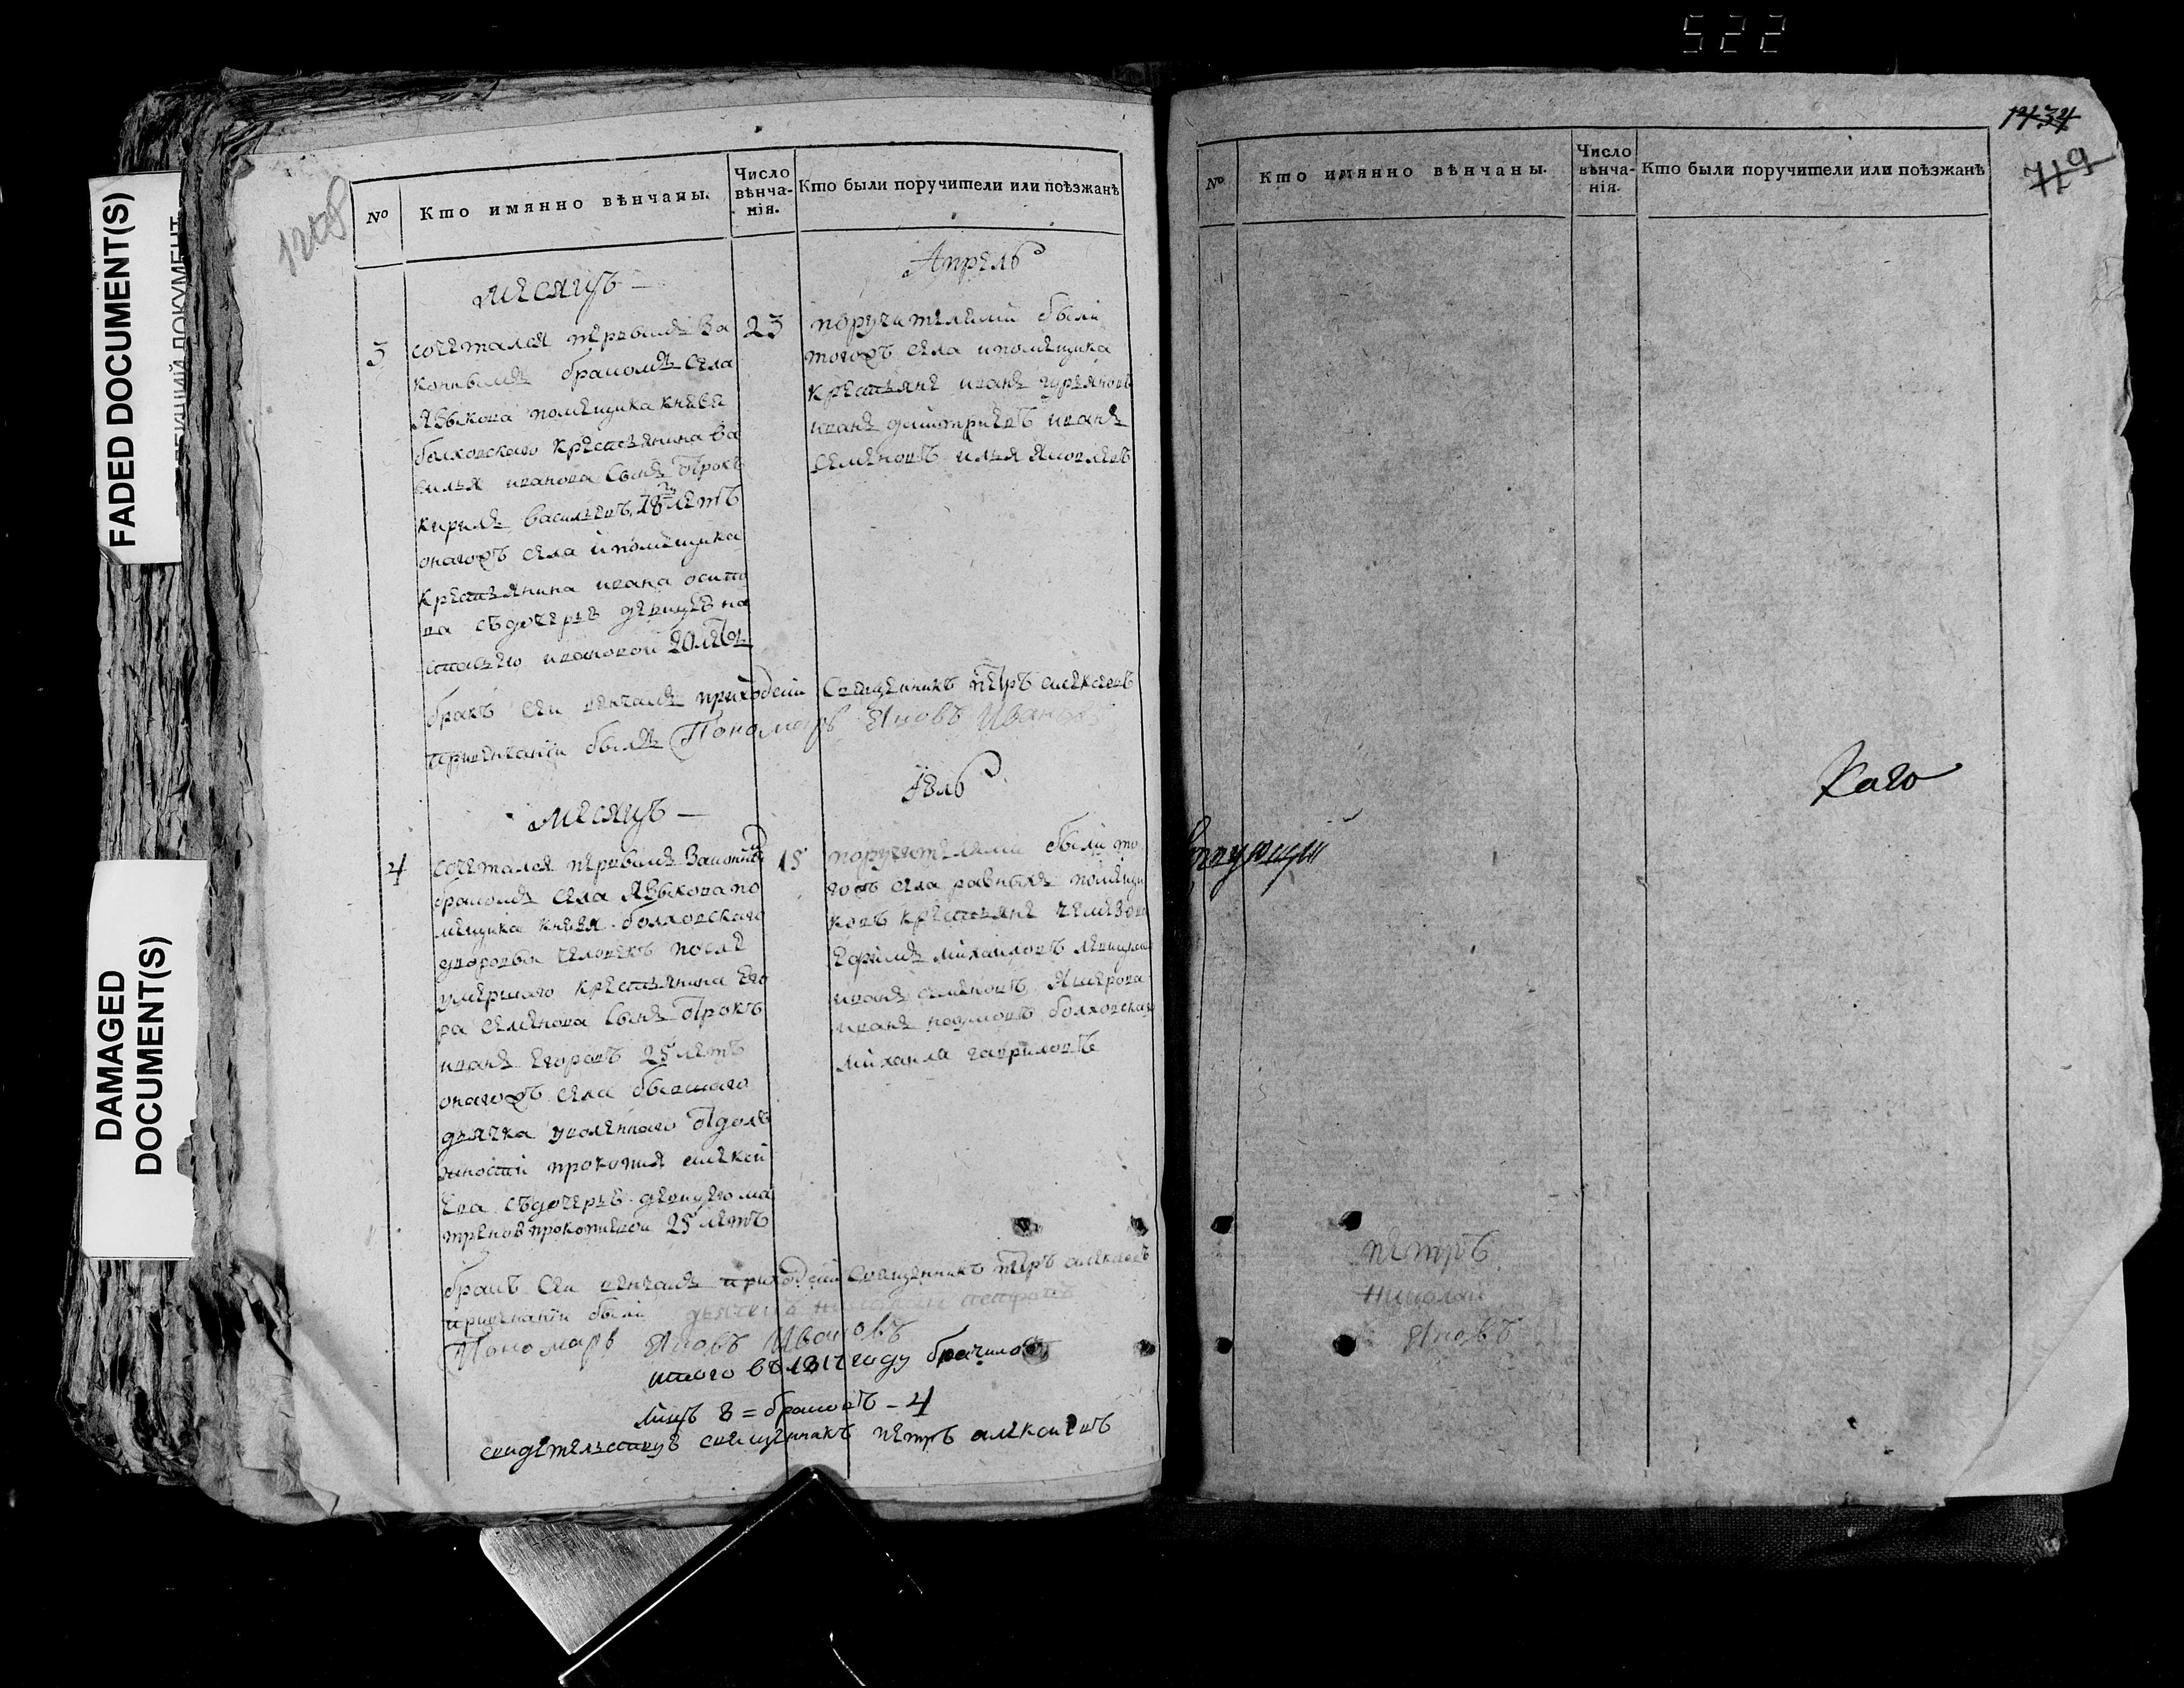 522
FADED DOCUMENT(S)
DAMAGED
DOCUMENT(S)
№
Кто имянно вѣнчаны.
Число
вѣнча-
нія.
Кто были поручители или поѣзжанѣ
месяцъ —
Апрель
3
сочетался первымъ за
коннымъ бракомъ села
Языкова помещика князя
болховского крестьянина ва
силья иванова сынъ отрокъ
кирилъ васильевъ 18 летъ
оногожъ села и помещика
крестьянина ивана осипо
ва съдочерью девицею на
стасьею ивановой 20 летъ
23
поручителями были
тогожъ села и помещика
крестьяне иванъ гурьяновъ
иванъ дмитриевъ иванъ
семеновъ илья яковлевъ
бракъ сеи венчалъ приходски священникъ петръ алексеевъ
привенчании былъ Пономарь Яковъ Ивановъ
месяцъ —
Июль
4
сочетался первымъ законнымъ
бракомъ села Языкова по
мещика князя болховского
дворовы человекъ после
умершаго крестьянина его
ра семенова сынъ отрокъ
иванъ егоровъ 25 летъ
оногожъ села бывшаго
дьячка уволеннаго от дол
жности прокопия алексе
ева съдочерью девицею ма
треною прокопиевои 25 летъ
15
поручителями были то
гожъ села разныхъ помещи
ковъ крестьяне
ефимъ михаиловъ
иванъ семеновъ
иванъ наумовъ болховскаго
михаила гавриловъ
бракъ сеи венчалъ приходски священникъ петръ алексеевъ
привенчании были
Пономарь Яковъ Ивановъ
итого въ 1817 году брачилось
лицъ 8 = браковъ — 4
свидетельствуе священникъ петръ алексеевъ
1434
719
№
Кто имянно вѣнчаны.
Число
вѣнча-
нія.
Кто были поручители или поѣзжанѣ
петръ
николаи
Яковъ